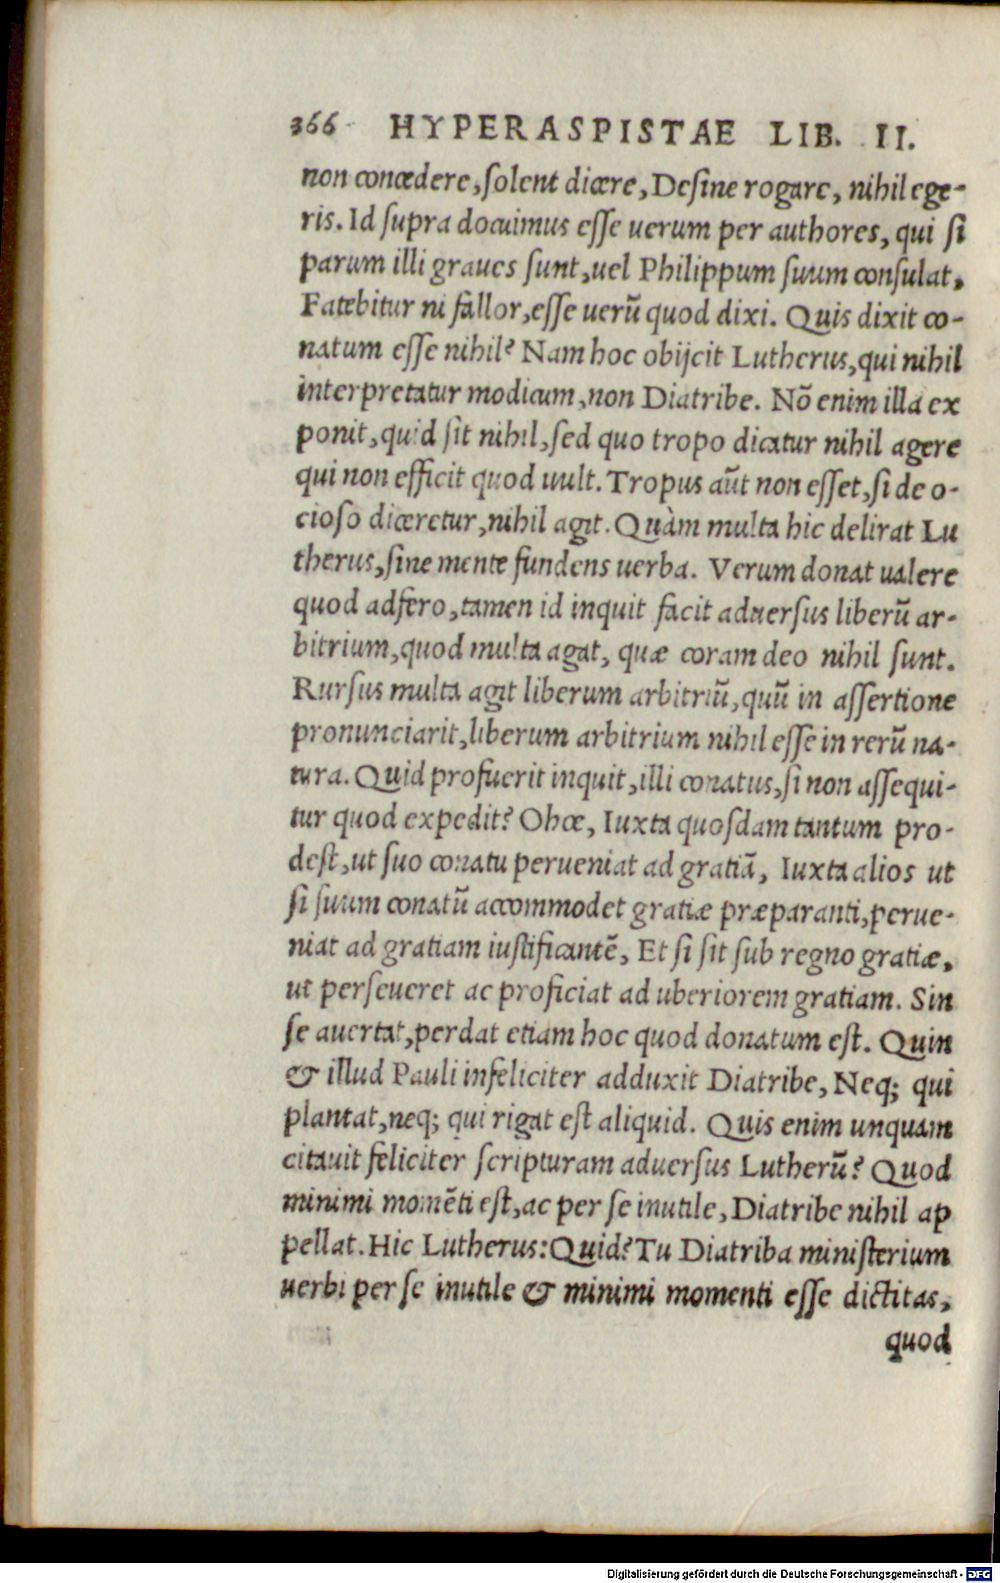 366 HYPERASPISTAE LIB. II.
non concedere, ſolent dicere, Deſine rogare, nihil ege-
ris. Id ſupra docuimus eſſe uerum per authores, qui ſi
parum illi graues ſunt, uel Philippum ſuum conſulat,
Fatebitur ni fallor, eſſe uerū quod dixi. Quis dixit co-
natum eſſe nihil? Nam hoc obijcit Lutherus, qui nihil
interpretatur modicum, non Diatribe. Nō enim illa ex
ponit, quid ſit nihil, ſed quo tropo dicatur nihil agere
qui non efficit quod uult. Tropus aūt non eſſet, ſi de o-
cioſo diceretur, nihil agit. Quàm multa hic delirat Lu
therus, ſine mente fundens uerba. Verum donat ualere
quod adfero, tamen id inquit facit aduerſus liberū ar-
bitrium, quod multa agat, quæ coram deo nihil ſunt.
Rurſus multa agit liberum arbitriū, quū in aſſertione
pronunciarit, liberum arbitrium nihil eſſe in rerū na-
tura. Quid profuerit inquit, illi conatus, ſi non aſſequi-
tur quod expedit? Ohoe, Iuxta quoſdam tantum pro-
deſt, ut ſuo conatu perueniat ad gratiā, Iuxta alios ut
ſi ſuum conatū accommodet gratiæ præparanti, perue-
niat ad gratiam iuſtificantē, Et ſi ſit ſub regno gratiæ,
ut perſeueret ac proficiat ad uberiorem gratiam. Sin
ſe auertat, perdat etiam hoc quod donatum eſt. Quin
& illud Pauli infeliciter adduxit Diatribe, Neq; qui
plantat, neq; qui rigat eſt aliquid. Quis enim unquam
citauit feliciter ſcripturam aduerſus Lutherū? Quod
minimi momēti eſt, ac per ſe inutile, Diatribe nihil ap
pellat. Hic Lutherus: Quid? Tu Diatriba miniſterium
uerbi per ſe inutile & minimi momenti eſſe dictitas,
quod
Digitalisierung gefördert durch die Deutsche Forschungsgemeinschaft - DFG